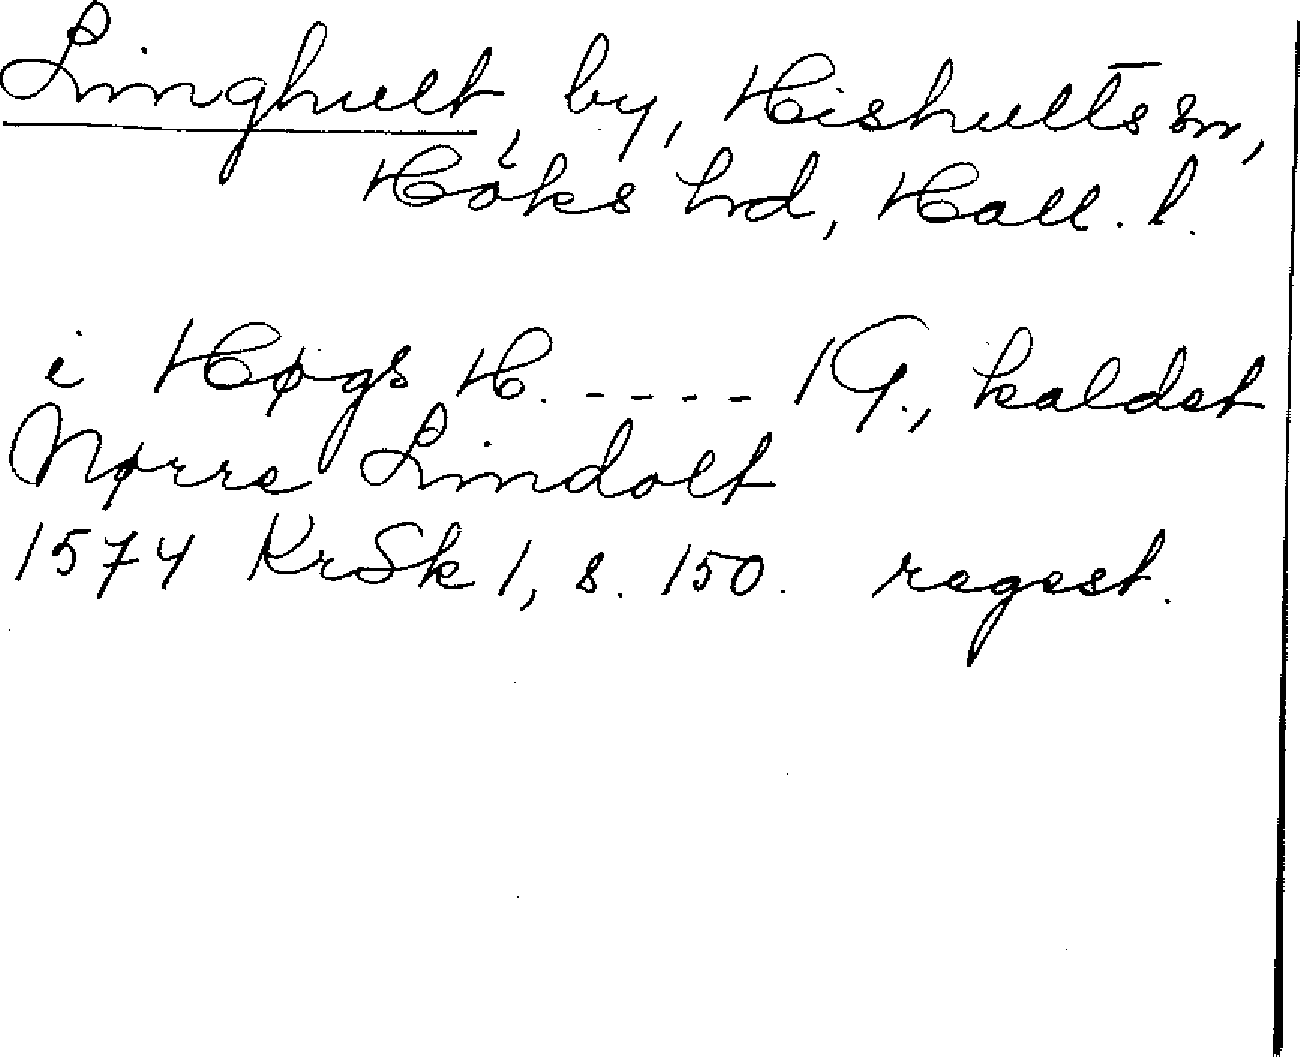 Linghult, by, Hishults sn,
Höks hd, Hall. l.
i Høgs H. - - - - - 1 G., kaldet
Nørre Lindolt
1574 KrSk 1, s. 150. regest.